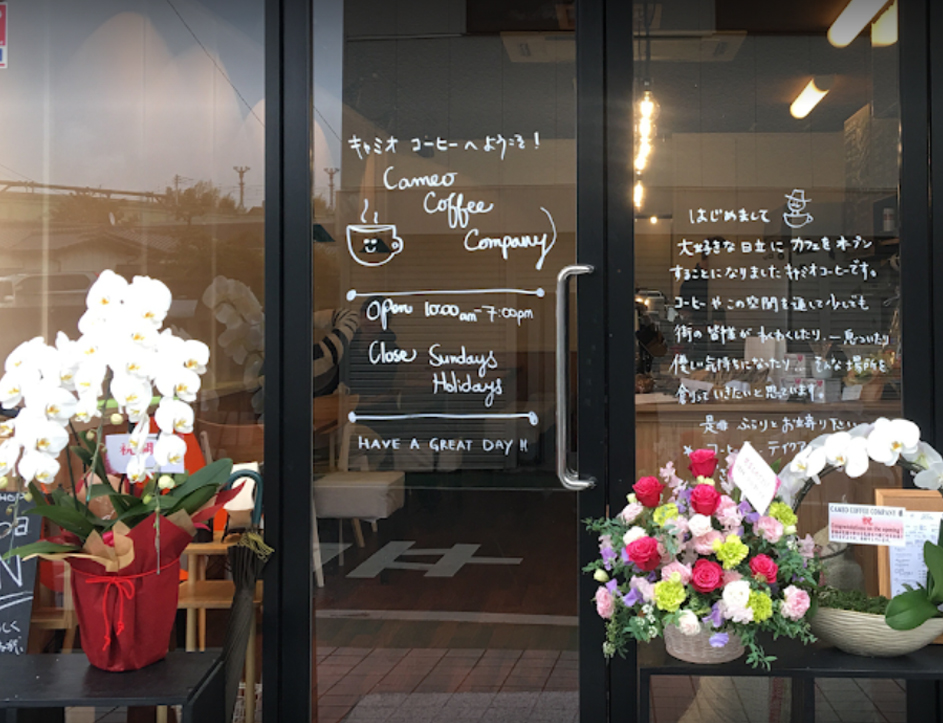 キャミオ コーヒーへようこそ!
Cameo
Coffee
Company
Open 10:00am-7:00pm
Close Sundays
Holidays
HAVE A GREAT DAY!!
はじめまして
大好きな日立にカフェをオープン
することになりましたキャミオコーヒーです。
コーヒーやこの空間を通して少しでも
街の皆様がわくわくしたり、一息ついたり
優しい気持ちになったり… そんな場所を
創っていきたいと思っています。
是非ふらりとお立寄り下さい
* コーヒー テイクア
祝
CAMEO COFFEE COMPANY
祝
Congratulations on the opening